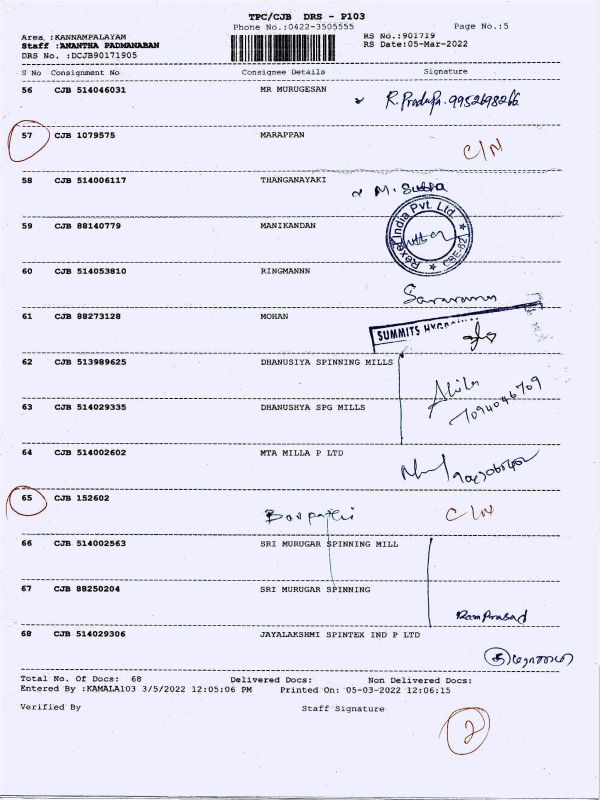 TPC/CJB DRS - P103
Phone No.:0422-3505555
Page No.:5
Area :KANNAMPALAYAM
RS No.:901719
Staff :ANANTHA PADMANABAN
RS Date:05-Mar-2022
DRS No. :DCJB90171905
S No Consignment No Consignee Details Signature
56 CJB 514046031 MR MURUGESAN
R. Pradupa. 9952698266
57 CJB 1079575 MARAPPAN
C/N
58 CJB 514006117 THANGANAYAKI
M. Sudha
59 CJB 88140779 MANIKANDAN
Rexel India Pvt. Ltd.
CBE-621
60 CJB 514053810 RINGMANNN
Saravanan
61 CJB 88273128 MOHAN
SUMMITS
62 CJB 513989625 DHANUSIYA SPINNING MILLS
Akila
7094046709
63 CJB 514029335 DHANUSHYA SPG MILLS
64 CJB 514002602 MTA MILLA P LTD
65 CJB 152602
C/N
66 CJB 514002563 SRI MURUGAR SPINNING MILL
67 CJB 88250204 SRI MURUGAR SPINNING
Ram Prasad
68 CJB 514029306 JAYALAKSHMI SPINTEX IND P LTD
Total No. Of Docs: 68 Delivered Docs: Non Delivered Docs:
Entered By :KAMALA103 3/5/2022 12:05:06 PM Printed On: 05-03-2022 12:06:15
Verified By Staff Signature
2